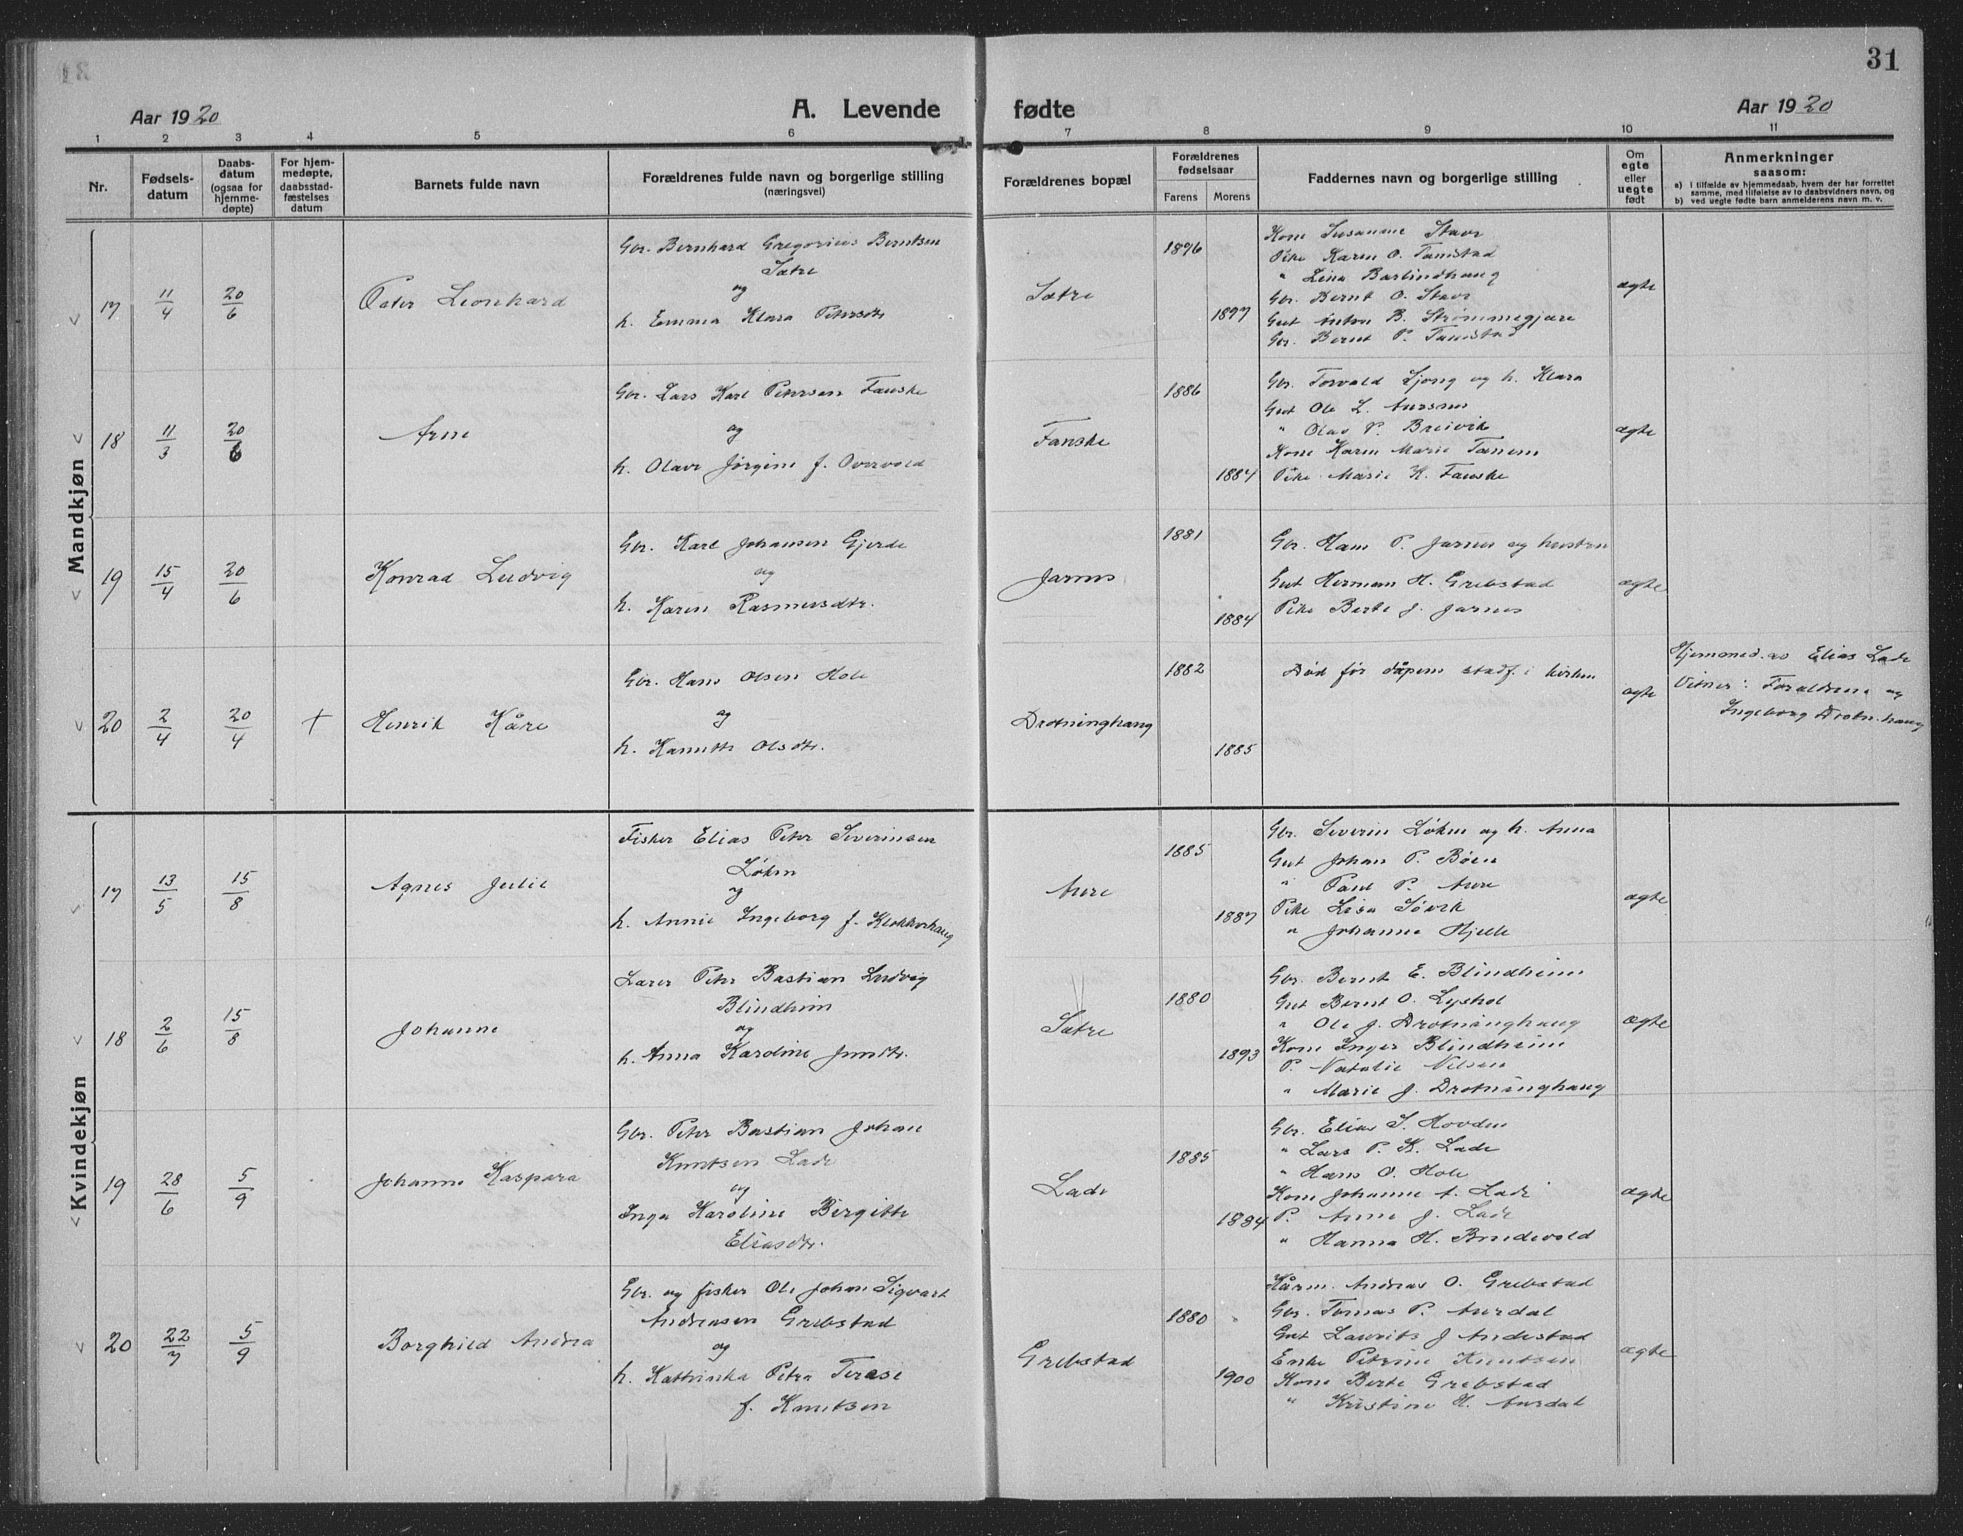 31
Aar 1920
A. Levende fødte
Aar 1920
1 2 3 4 5 6 7 8 9 10 11
Nr.
Fødselsdatum
Daabsdatum
(ogsaa for
hjemmedøpte)
For hjemmedøpte,
daabsstadfæstelses
datum
Barnets fulde navn
Forældrenes fulde navn og borgerlige stilling
(næringsvei)
Forældrenes bopæl
Forældrenes
fødselsaar
Farens Morens
Faddernes navn og borgerlige stilling
Om
egte
eller
uegte
født
Anmerkninger
saasom:
a) i tilfælde av hjemmedaab, hvem der har forrettet
samme, med tilføielse av to daabsvidners navn, og
b) ved uegte fødte barn anmelderens navn m. v.
Mandkjøn
17 11/4 20/6 Peter Leonhard
Gbr. Bernhard Gregorius Berntsen
Sætre
og
h. Emma Klara Petersdtr
Sætre
1896
1897
Kone Susanne Stavr
Pike Karen O. Tamstad
" Lina Barlindhaug
Gbr. Bernt O. Stavr
Gut Anton B. Strømmegjære
Gbr. Bernt P. Tamstad
egte
18 11/3 20/6 Arne
Gbr. Lars Karl Petersen Fauske
og
h. Olave Jørgine f. Overvold
Fauske
1886
1884
Gbr. Torvald Ljong og h. Klara
Gut Ole L. Aursnes
" Olav P. Breivik
Kone Karen Marie Tanem
Pike Marie K. Fauske
egte
19 15/4 20/6 Konrad Ludvig
Gbr. Karl Johansen Gjerde
og
h. Karen Rasmusdtr.
Jarnes
1881
1884
Gbr. Hans P. Jarnes og hustru
Gut Herman H. Grebstad
Pike Berte J. Jarnes
egte
20 2/4 20/4 + Henrik Kåre
Gbr. Hans Olsen Hole
og
h. Hanette Olsdtr.
Drotninghaug
1882
1885
Død før dåpens stadf. i kirken
egte
Hjemmed. av Elias Lade
Vitner: Forældrene og
Ingeborg Drotn.haug
Kvindekjøn
17 13/5 15/8 Agnes Julie
Fisker Elias Peter Severinsen
Løken
og
h. Annie Ingeborg f. Klokkerhaug
Aure
1885
1887
Gbr. Severin Løken og h. Anna
Gut Johan P. Bøen
" Paul P. Aure
Pike Lisa Søvik
" Johanne Hjelle
egte
18 2/6 15/8 Johanne
Lærer Peter Bastian Ludvig
Blindheim
og
h. Anna Karoline Jensdtr.
Sætre
1880
1893
Gbr. Bernt E. Blindheim
Gut Bernt O. Lyshol
" Ole J. Drotninghaug
Kone Inger Blindheim
P. Natalie Nilsen
" Marie J. Drotninghaug
egte
19 28/6 5/9 Johanne Kaspara
Gbr. Peter Bastian Johan
Knutsen Lade
og
Inga Karoline Birgitte
Eliasdtr.
Lade
1885
1884
Gbr. Elias S. Hovden
" Lars P. K. Lade
" Hans O. Hole
Kone Johanne A. Lade
P. Anne J. Lade
" Hanna H. Brudevold
egte
20 22/7 5/9 Borghild Andrea
Gbr. og fisker Ole Johan Sigvart
Andreasen Grebstad
og
h. Kattrinka Petra Terese
f. Knutsen
Grebstad
1880
1900
Kårm. Andreas O. Grebstad
Gbr. Tomas P. Aurdal
Gut Laurits J Andestad
Enke Petrine Knutsen
Kone Berte Grebstad
" Kristine H. Aurdal
egte